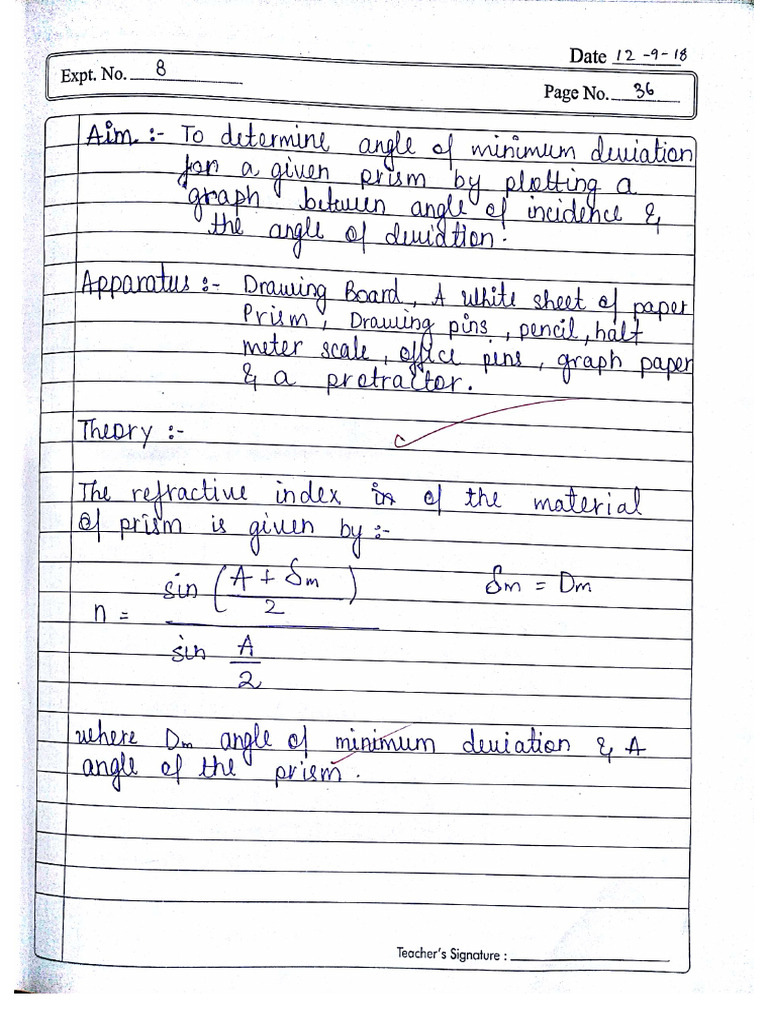 Date 12-9-18
Expt. No. 8
Page No. 36
Aim :- To determine angle of minimum deviation
for a given prism by plotting a
graph between angle of incidence &
the angle of deviation.
Apparatus :- Drawing Board, A white sheet of paper
Prism, Drawing pins, pencil, half
meter scale, office pins, graph paper
& a protractor.
Theory :-
The refractive index in of the material
of prism is given by :-
n = sin (A + δm / 2) / sin A/2 δm = Dm
where Dm angle of minimum deviation & A
angle of the prism.
Teacher's Signature :